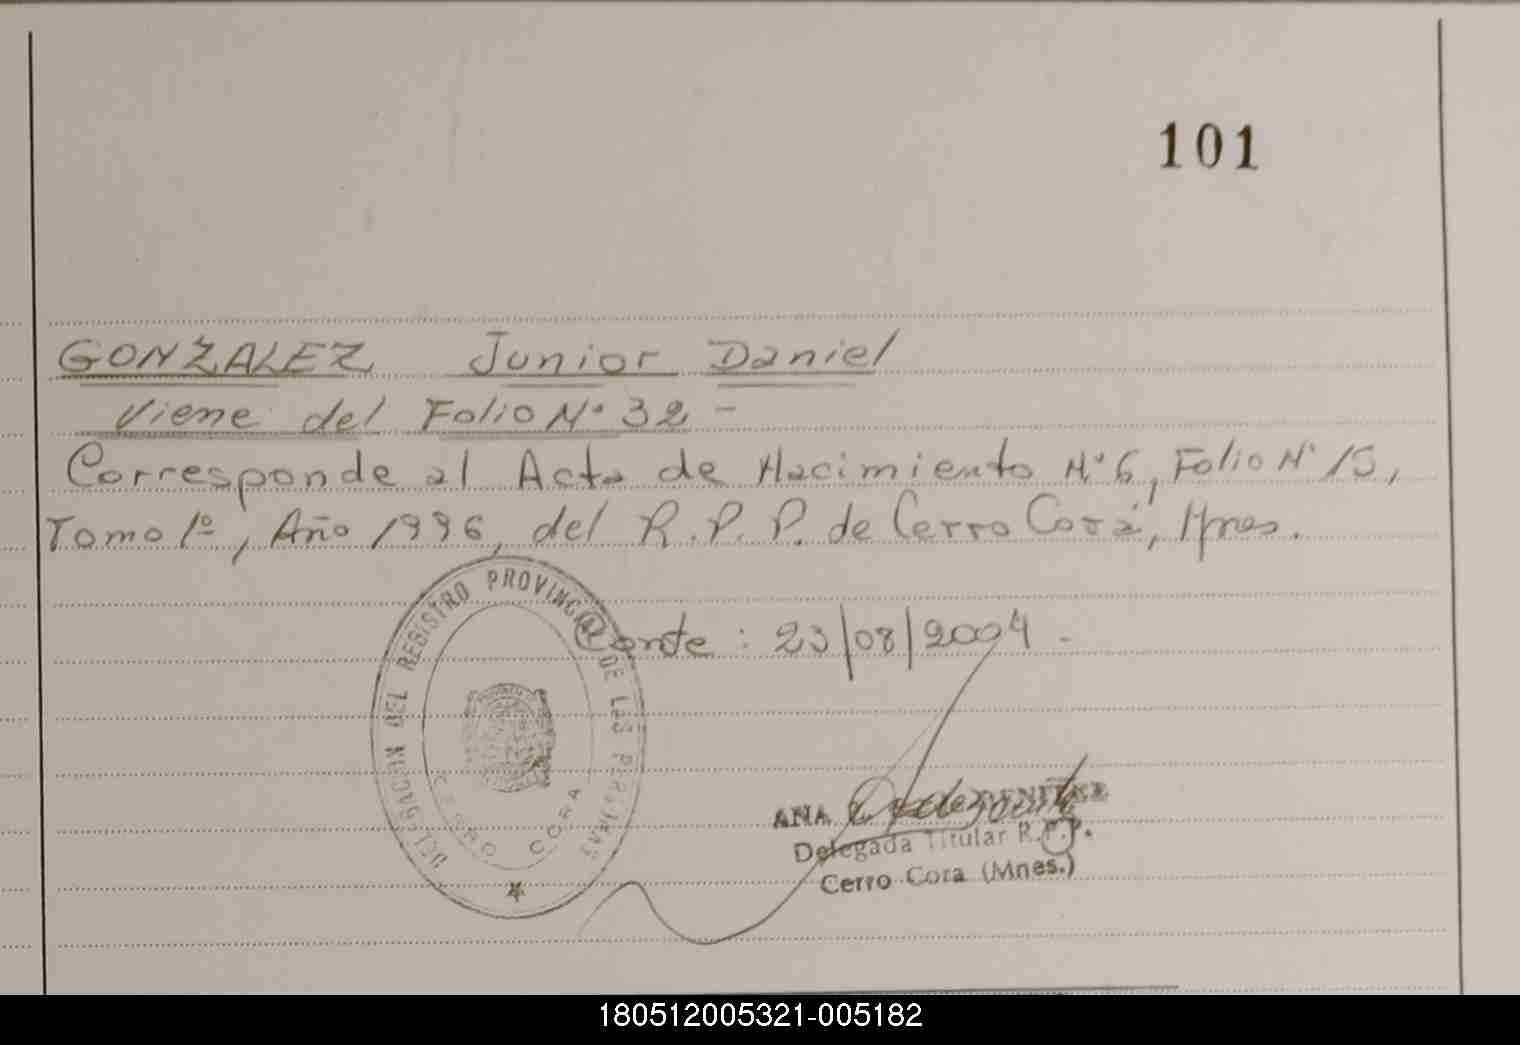 101
GONZALEZ Junior Daniel
Viene del Folio Nº 32 -
Corresponde al Acta de Nacimiento Nº 6, Folio Nº 15,
Tomo 1º, Año 1996, del R.P.P. de Cerro Corá, Mnes.
DELEGACION DEL REGISTRO PROVINCIAL DE LAS PERSONAS
CERRO CORA
Conste: 23/08/2004.-
ANA
Delegada Titular R.P.P.
Cerro Cora (Mnes.)
180512005321-005182